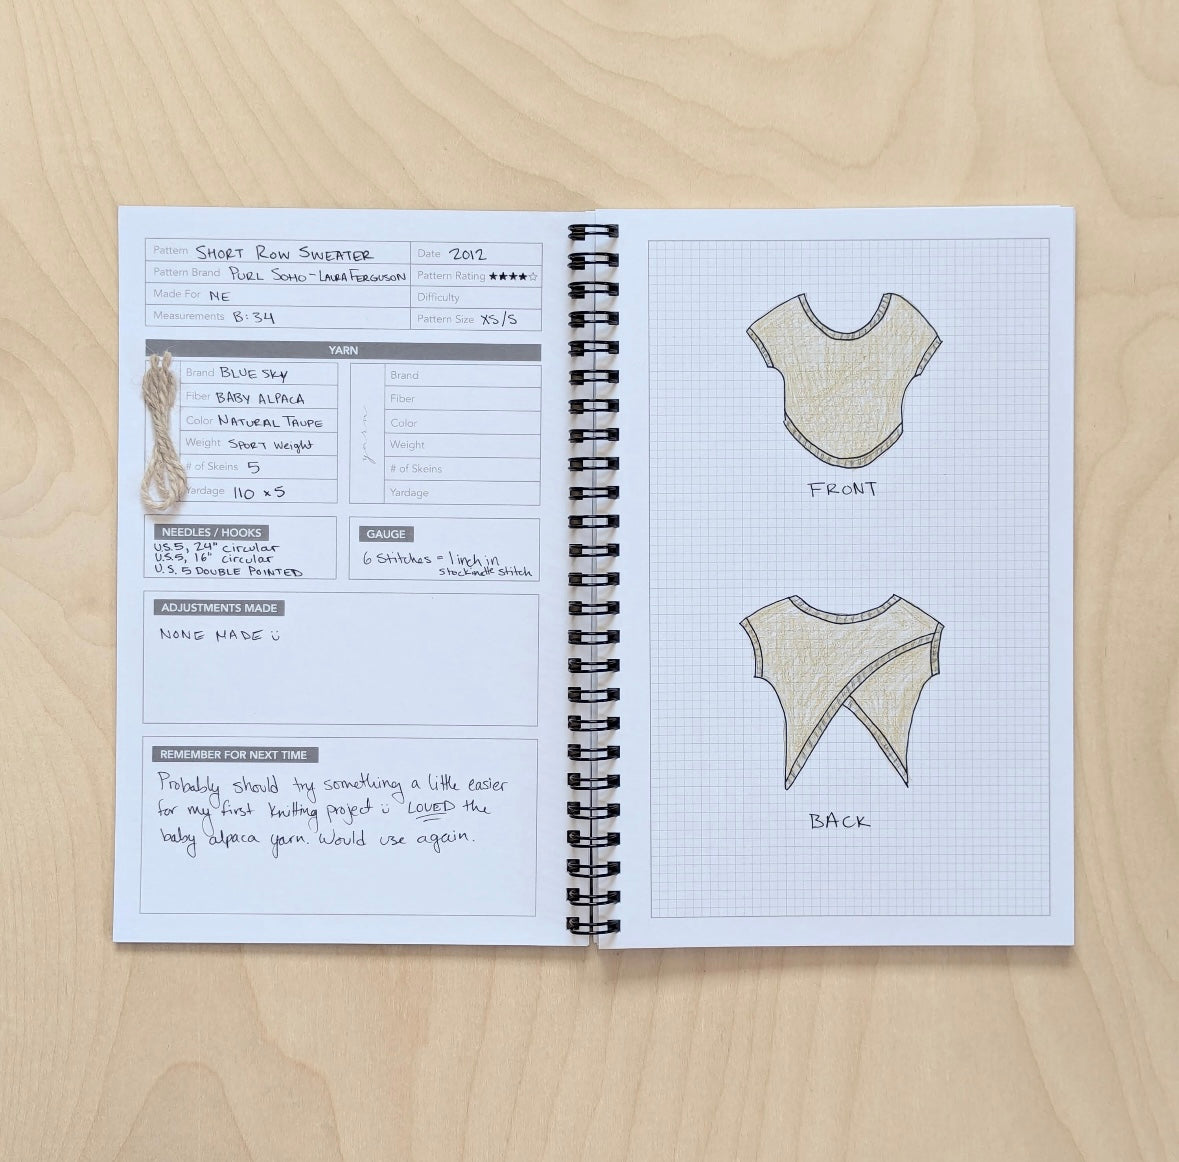 Pattern SHORT ROW SWEATER
Date 2012
Pattern Brand PURL SOHO - LAURA FERGUSON
Pattern Rating ★★★★☆
Made For ME
Difficulty
Measurements B: 34
Pattern Size XS/S
YARN
Brand BLUE SKY
Fiber BABY ALPACA
Color NATURAL TAUPE
Weight SPORT Weight
# of Skeins 5
Yardage 110 x 5
yarn
Brand
Fiber
Color
Weight
# of Skeins
Yardage
NEEDLES / HOOKS
U.S. 5, 24" circular
U.S. 5, 16" circular
U.S. 5 DOUBLE POINTED
GAUGE
6 Stitches = 1 inch in
stockinette stitch
ADJUSTMENTS MADE
NONE MADE ü
REMEMBER FOR NEXT TIME
Probably should try something a little easier
for my first knitting project ü LOVED the
baby alpaca yarn. Would use again.
FRONT
BACK